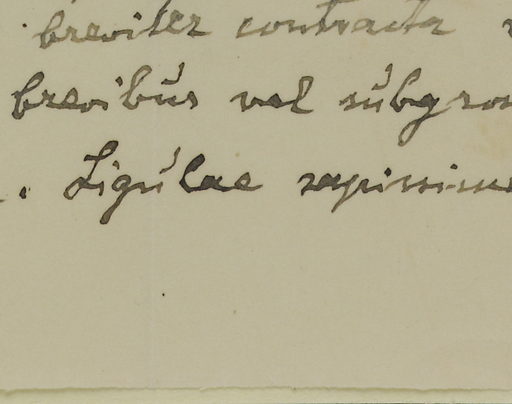 breviter contracta
brevibus vel subgros
. Ligulae sapissime